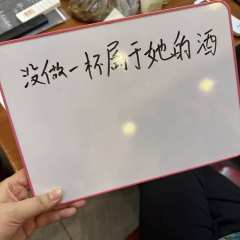 没做一杯属于她的酒